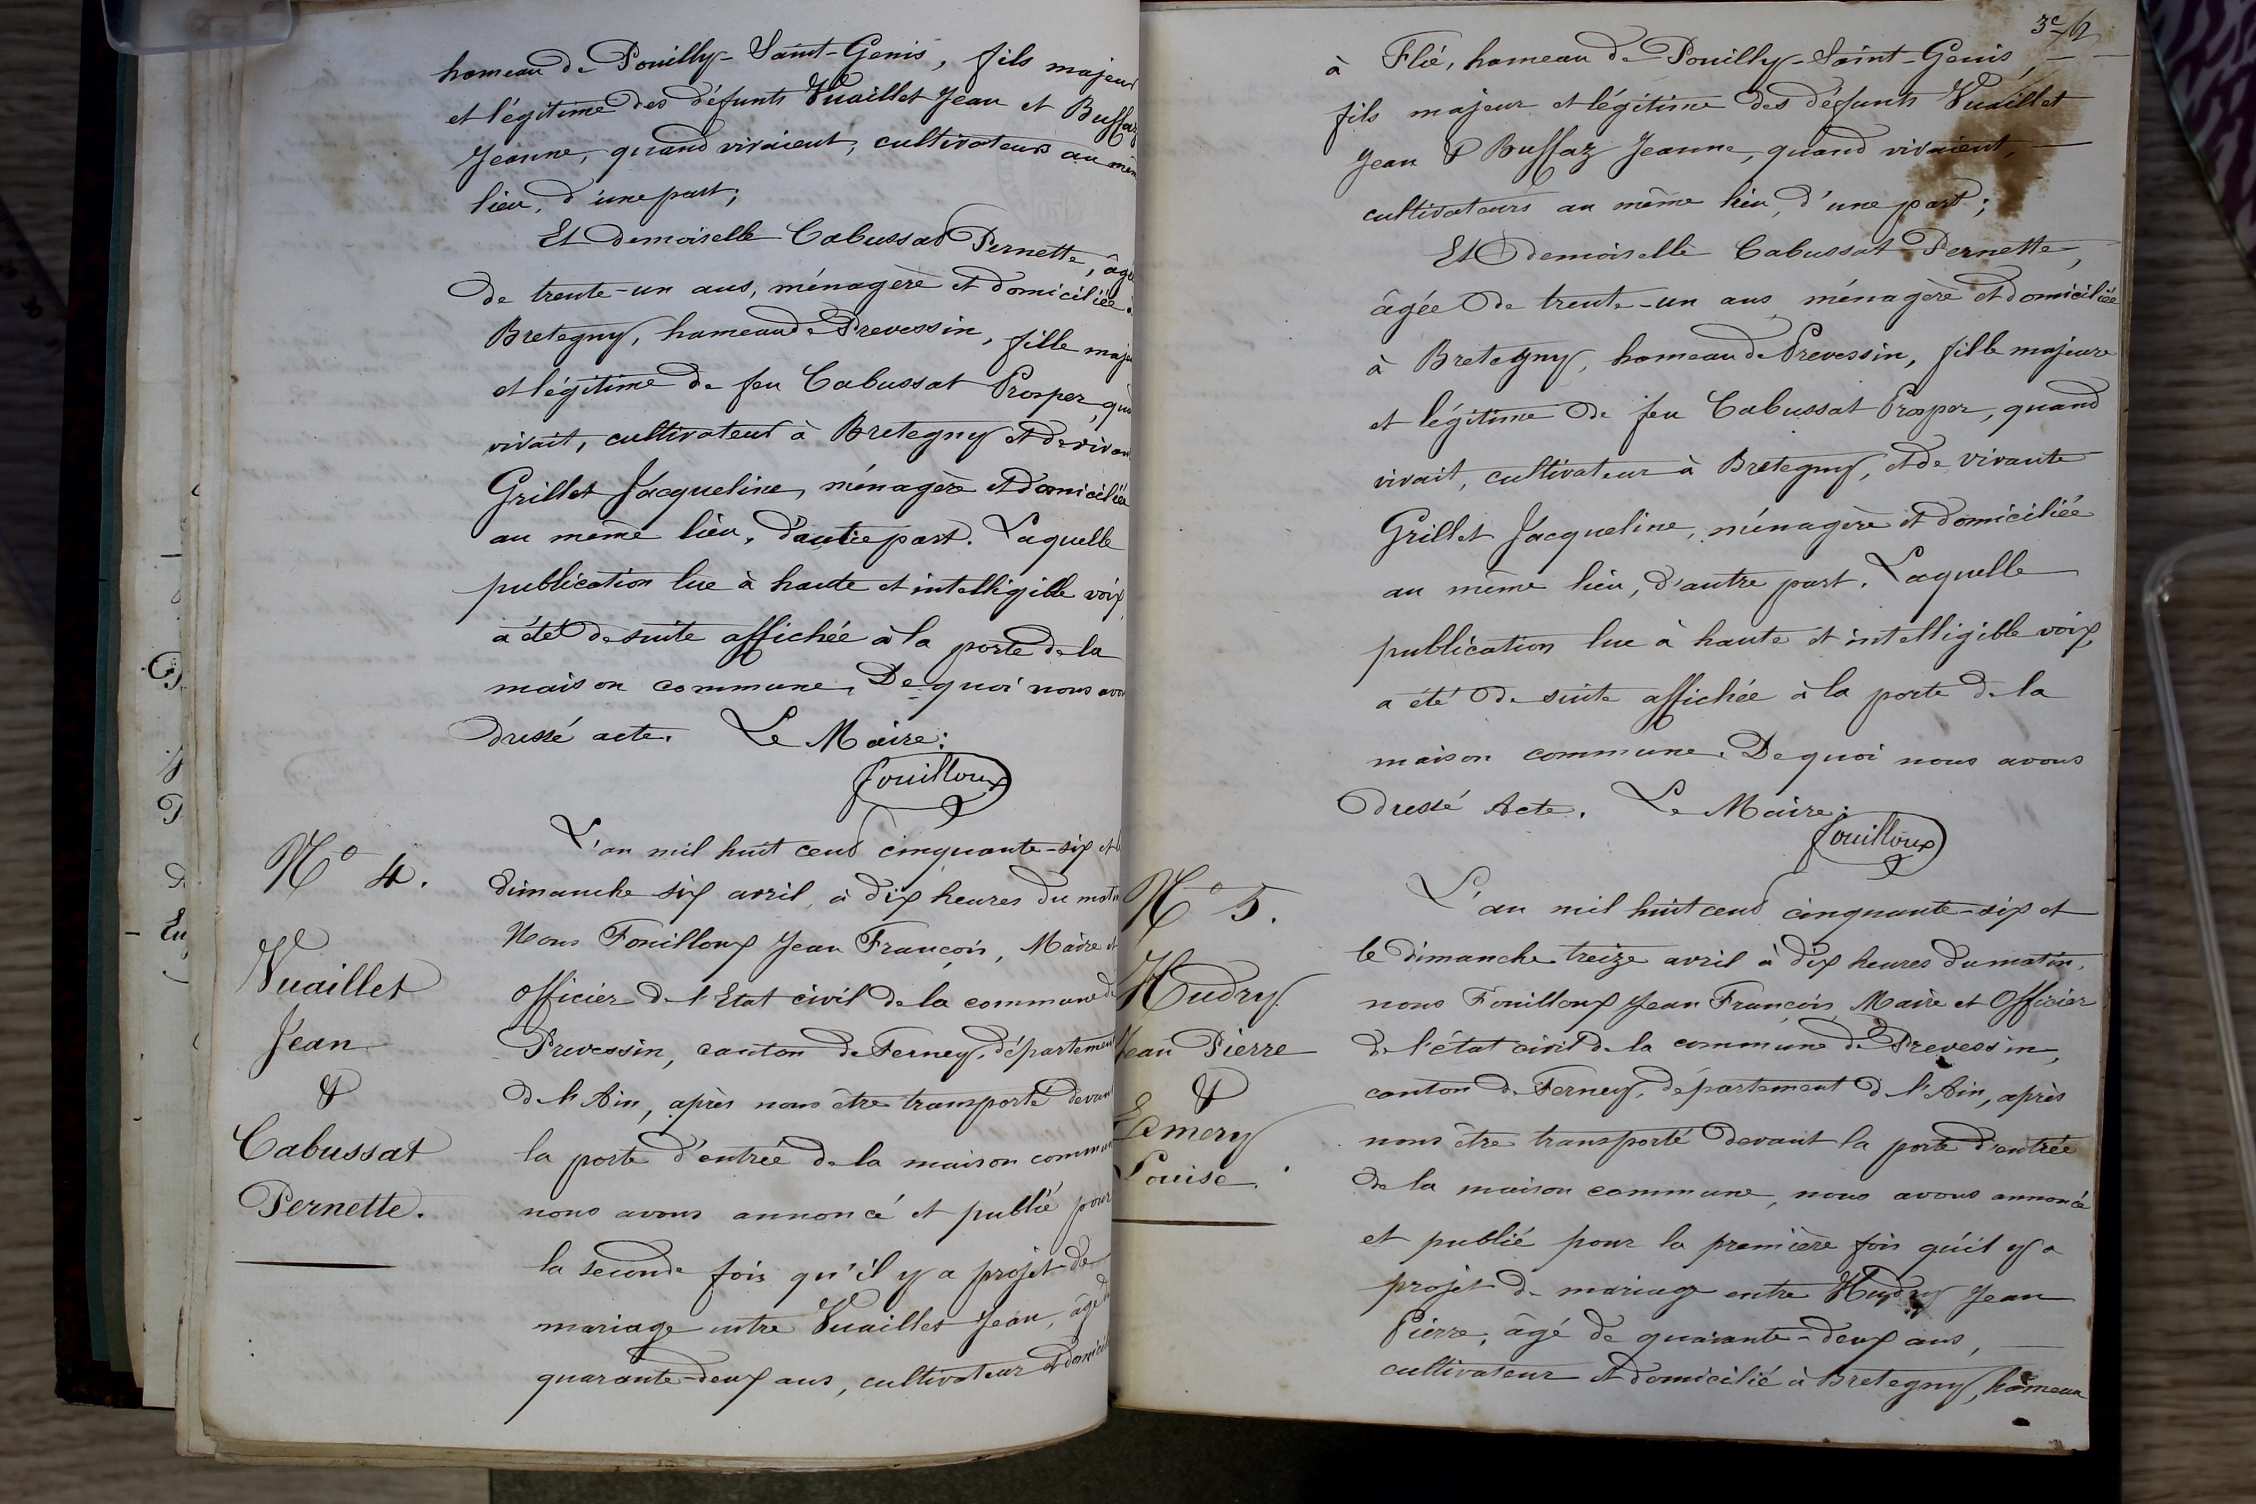 hameau de Pouilly-Saint-Genis, fils majeur
et légitime des défunts Vuaillet Jean et Buffaz
Jeanne, quand vivaient, cultivateurs au mêm
lieu, d'une part;
Et demoiselle Cabussat Pernette, âgé
de trente-un ans, ménagère et domiciliée
Bretegny, hameau de Prevessin, fille maje
et légitime de feu Cabussat Prosper, qu
vivait, cultivateur à Bretegny et de vivan
Grillet Jacqueline, ménagère et domiciliée
au même lieu, d'autre part. Laquelle
publication lue à haute et intelligible voix,
a été de suite affichée à la porte de la
maison commune. De quoi nous avo
dressé acte. Le Maire:
Fouilloux
N° 4.
Vuaillet
Jean
&
Cabussat
Pernette.
L'an mil huit cent cinquante-six et l
dimanche six avril, à dix heures du matin
Nous Fouilloux Jean François, Maire et
Officier de l'Etat civil de la commune de
Prevessin, canton de Ferney, département
de l'Ain, après nous être transporté devant
la porte d'entrée de la maison commun
nous avons annoncé et publié pour
la seconde fois qu'il y a projet de
mariage entre Vuaillet Jean, âgé de
quarante-deux ans, cultivateur et domicilié
3e
à Flié, hameau de Pouilly-Saint-Genis,
fils majeur et légitime des défunts Vuaillet
Jean & Buffaz Jeanne, quand vivaient,
cultivateurs au même lieu, d'une part;
Et demoiselle Cabussat Pernette,
âgée de trente-un ans ménagère et domiciliée
à Bretegny, hameau de Prevessin, fille majeure
et légitime de feu Cabussat Prosper, quand
vivait, cultivateur à Bretegny, et de vivante
Grillet Jacqueline, ménagère et domiciliée
au même lieu, d'autre part. Laquelle
publication lue à haute et intelligible voix,
a été de suite affichée à la porte de la
maison commune. De quoi nous avons
dressé Acte. Le Maire:
Fouilloux
N° 5.
Hudry
Jean Pierre
&
Emery
Louise.
L'an mil huit cent cinquante-six et
le dimanche treize avril à dix heures du matin,
nous Fouilloux Jean François, Maire et Officier
de l'état civil de la commune de Prevessin,
canton de Ferney, département de l'Ain, après
nous être transporté devant la porte d'entrée
de la maison commune, nous avons annoncé
et publié pour la première fois qu'il y a
projet de mariage entre Hudry Jean
Pierre, âgé de quarante-deux ans,
cultivateur et domicilié à Bretegny, hameau